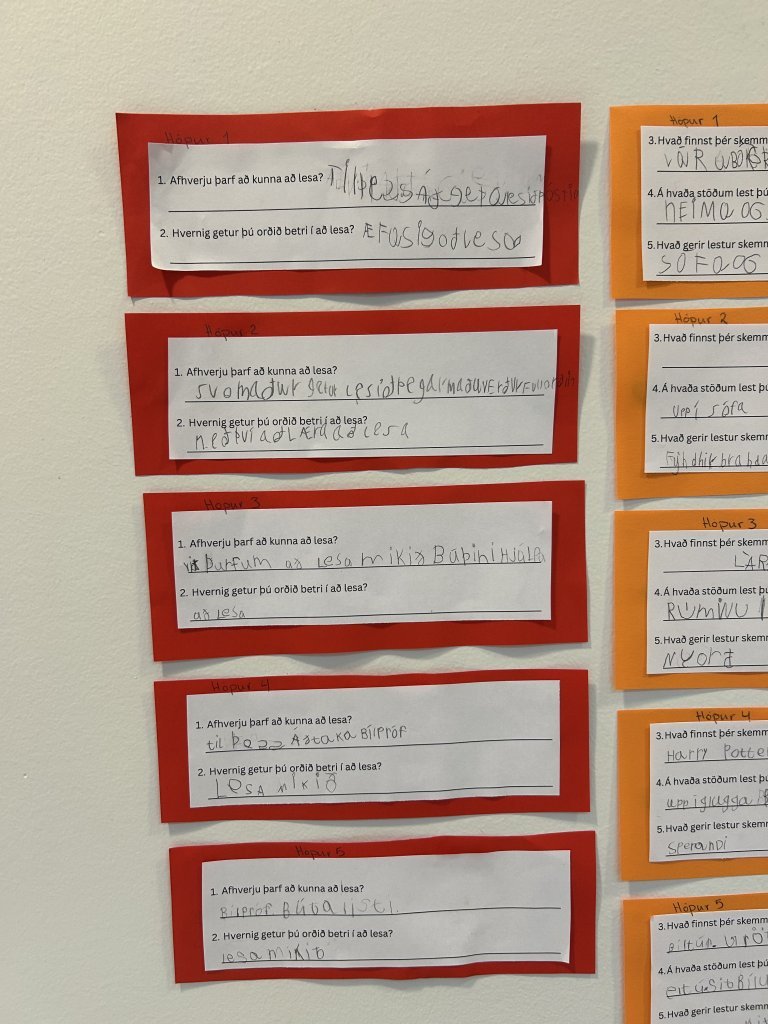 Hópur 1
1. Afhverju þarf að kunna að lesa? TIL ÞESS AÐ getA lesið PÓSTIN
2. Hvernig getur þú orðið betri í að lesa? ÆFa sig að lesa
Hópur 2
1. Afhverju þarf að kunna að lesa?
svo maður getur lesið þegar maður vErður
2. Hvernig getur þú orðið betri í að lesa?
með því að LÆra að lesa
Hópur 3
1. Afhverju þarf að kunna að lesa?
við þurfum að Lesa mikið
2. Hvernig getur þú orðið betri í að lesa?
að lesa
Hópur 4
1. Afhverju þarf að kunna að lesa?
til þess AÐ taka BÍLPRÓF
2. Hvernig getur þú orðið betri í að lesa?
LesA mikið
Hópur 5
1. Afhverju þarf að kunna að lesa?
BÍLPRÓF.
2. Hvernig getur þú orðið betri í að lesa?
lesa mikið
Hópur 1
3. Hvað finnst þér skemm
4. Á hvaða stöðum lest þú
HEIMA OG
5. Hvað gerir lestur skemm
SÓFA OG
Hópur 2
3. Hvað finnst þér skemm
4. Á hvaða stöðum lest þú
uppí sófa
5. Hvað gerir lestur skemm
Hópur 3
3. Hvað finnst þér skemm
LÁR
4. Á hvaða stöðum lest þú
RÚMINU
5. Hvað gerir lestur skemm
Ný orð
Hópur 4
3. Hvað finnst þér skemm
Harry Potte
4. Á hvaða stöðum lest þú
uppi glugga
5. Hvað gerir lestur skemm
SpennandI
Hópur 5
3. Hvað finnst þér skemm
4. Á hvaða stöðum lest þú
5. Hvað gerir lestur skemm